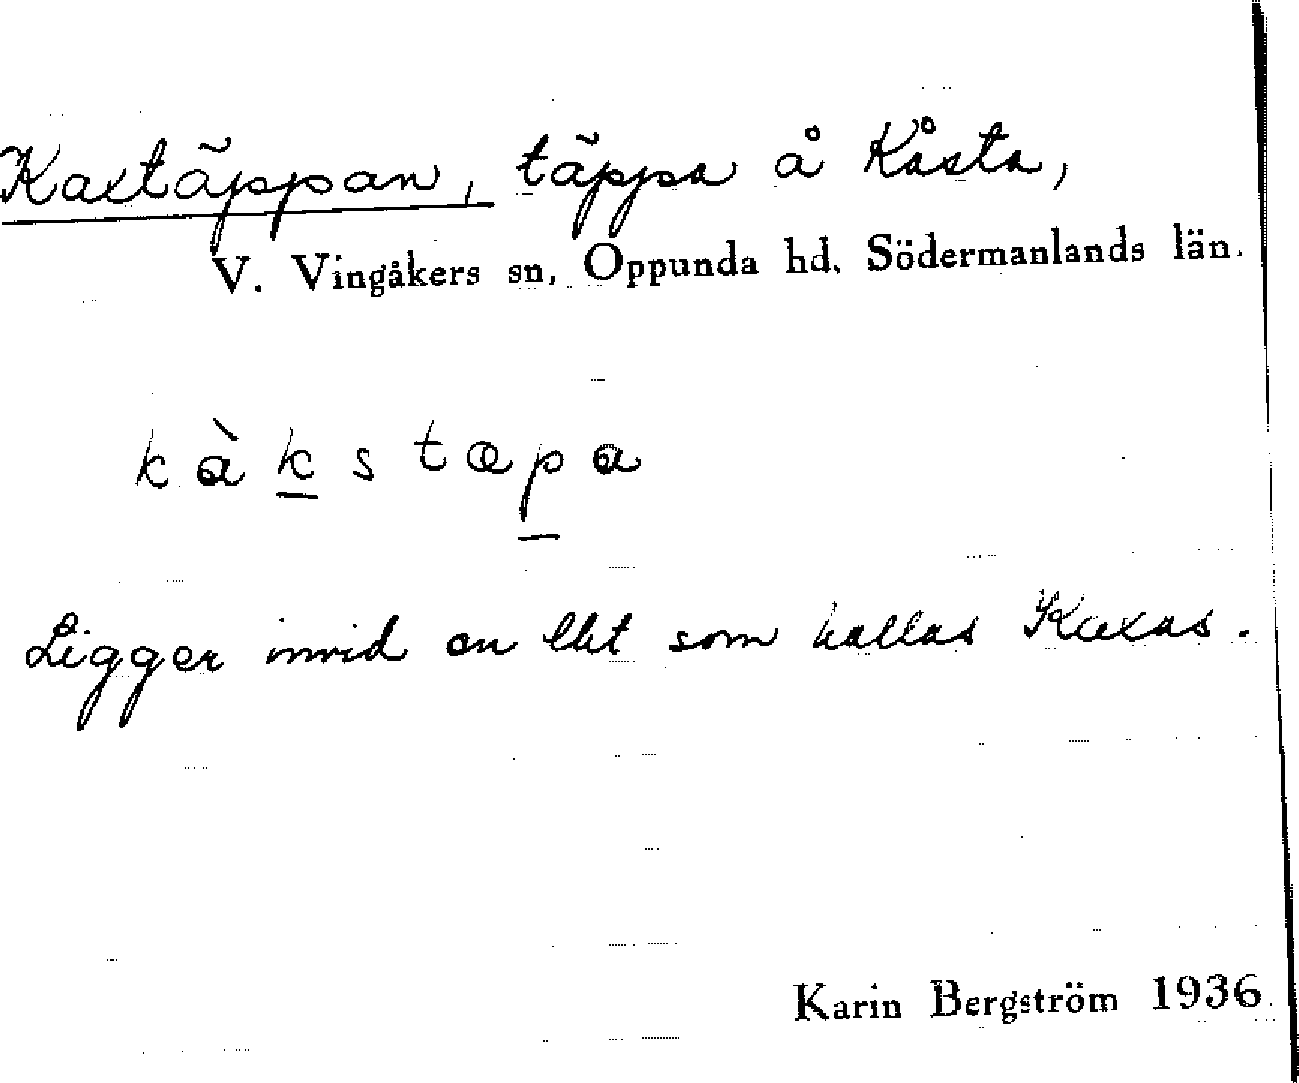 Kaxtäppan, täppa å Kåsta,
V. Vingåkers sn, Oppunda hd, Södermanlands län.
kàkstæpa
Ligger invid en slät som kallas Kaxas.
Karin Bergström 1936